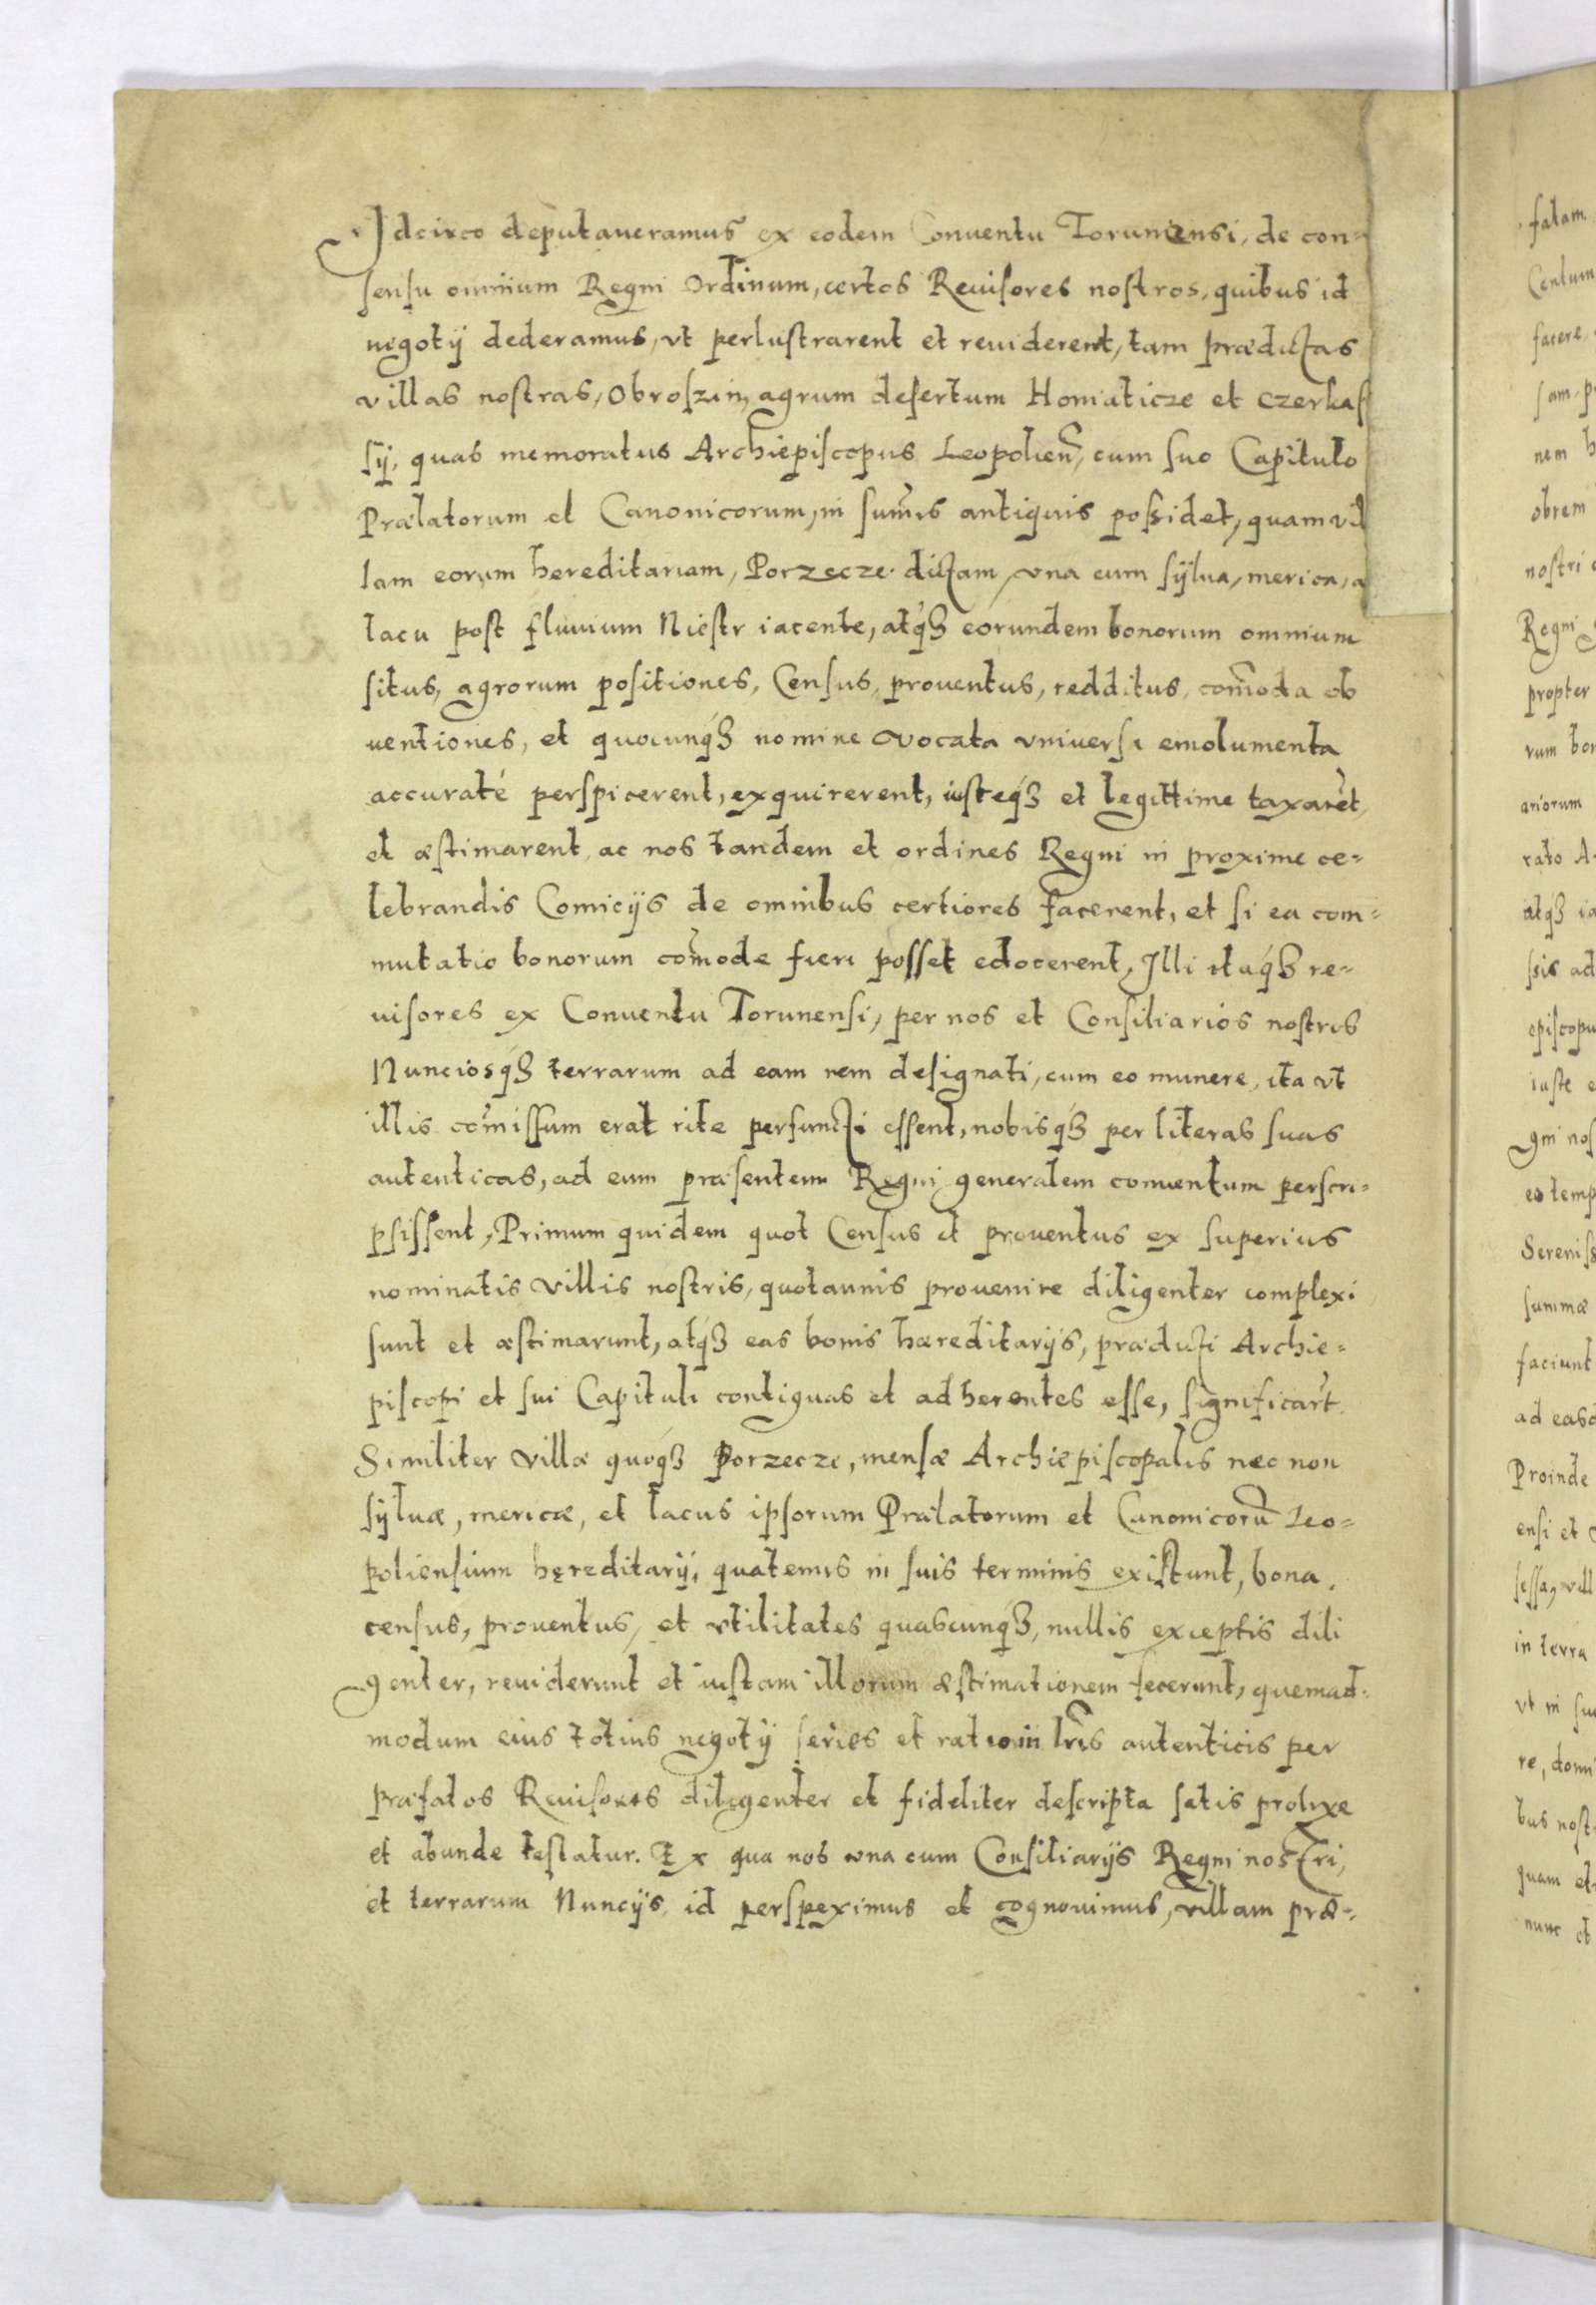 Idcirco deputaueramus ex eodem Conuentu Torunensi, de con=
sensu omnium Regni Ordinum, certos Reuisores nostros, quibus id
negotij dederamus, vt perlustrarent et reuiderent, tam prædictas
villas nostras, Obroszin, agrum desertum Homaticze et Czerkas
sy, quas memoratus Archiepiscopus Leopolien̄, cum suo Capitulo
Prælatorum et Canonicorum, in sum̄is antiquis possidet, quam vil
lam eorum hereditariam, Porzecze dictam, vna cum sylua, merica, a
lacu post fluuium Niestr iacente, atq́ꝫ eorundem bonorum omnium
situs, agrorum positiones, Census, prouentus, redditus, com̄oda ob
uentiones, et quocunq́ꝫ nomine vocata vniuersa emolumenta
accuraté perspicerent, exquirerent, iusteq́ꝫ et legittime taxarēt,
et æstimarent, ac nos tandem et ordines Regni in proxime ce=
lebrandis Comicijs de omnibus certiores facerent, et si ea com=
mutatio bonorum com̄ode fieri posset edocerent, Illi itaq́ꝫ re=
uisores ex Conuentu Torunensi, per nos et Consiliarios nostros
Nunciosq́ꝫ terrarum ad eam rem designati, cum eo munere, ita vt
illis com̄issum erat rite perfuncti essent, nobisq́ꝫ per literas suas
autenticas, ad eum præsentem Regni generalem conuentum perscri=
psissent, Primum quidem quot Census et prouentus ex superius
nominatis villis nostris, quotannis prouenire diligenter complexi
sunt et æstimarunt, atq́ꝫ eas bonis hæreditarijs, prædicti Archie=
piscopi et sui Capituli contiguas et adherentes esse, significarūt.
Similiter villæ quoq́ꝫ Porzecze, mensæ Archiepiscopalis nec non
syluæ, mericæ, et lacus ipsorum Prælatorum et Canonicorū Leo=
poliensium hęreditarij, quatenus in suis terminis existunt, bona,
census, prouentus, et vtilitates quascunq́ꝫ, nullis exceptis dili
genter, reuiderunt et iustam illorum æstimationem fecerunt, quemad=
modum eius totius negotij series et ratio in lr̄is autenticis per
præfatos Reuisores diligenter et fideliter descripta satis prolixe
et abunde testatur. Ex qua nos vna cum Consiliarijs Regni nostri,
et terrarum Nuncijs, id perspeximus et cognouimus, villam præ=
falam
Centum
facere
sam, p
nem h
obrem
nostri
Regni
propter
rum bon
ariorum
rato A
atq́ꝫ ia
ssis ad
episcopu
iuste e
gni nos
eo temp
Sereniss
summæ
faciunt
ad easd
Proinde
ensi et
sessa, vill
in terra
vt in su
re, domi
bus nost
quam et
nunc et